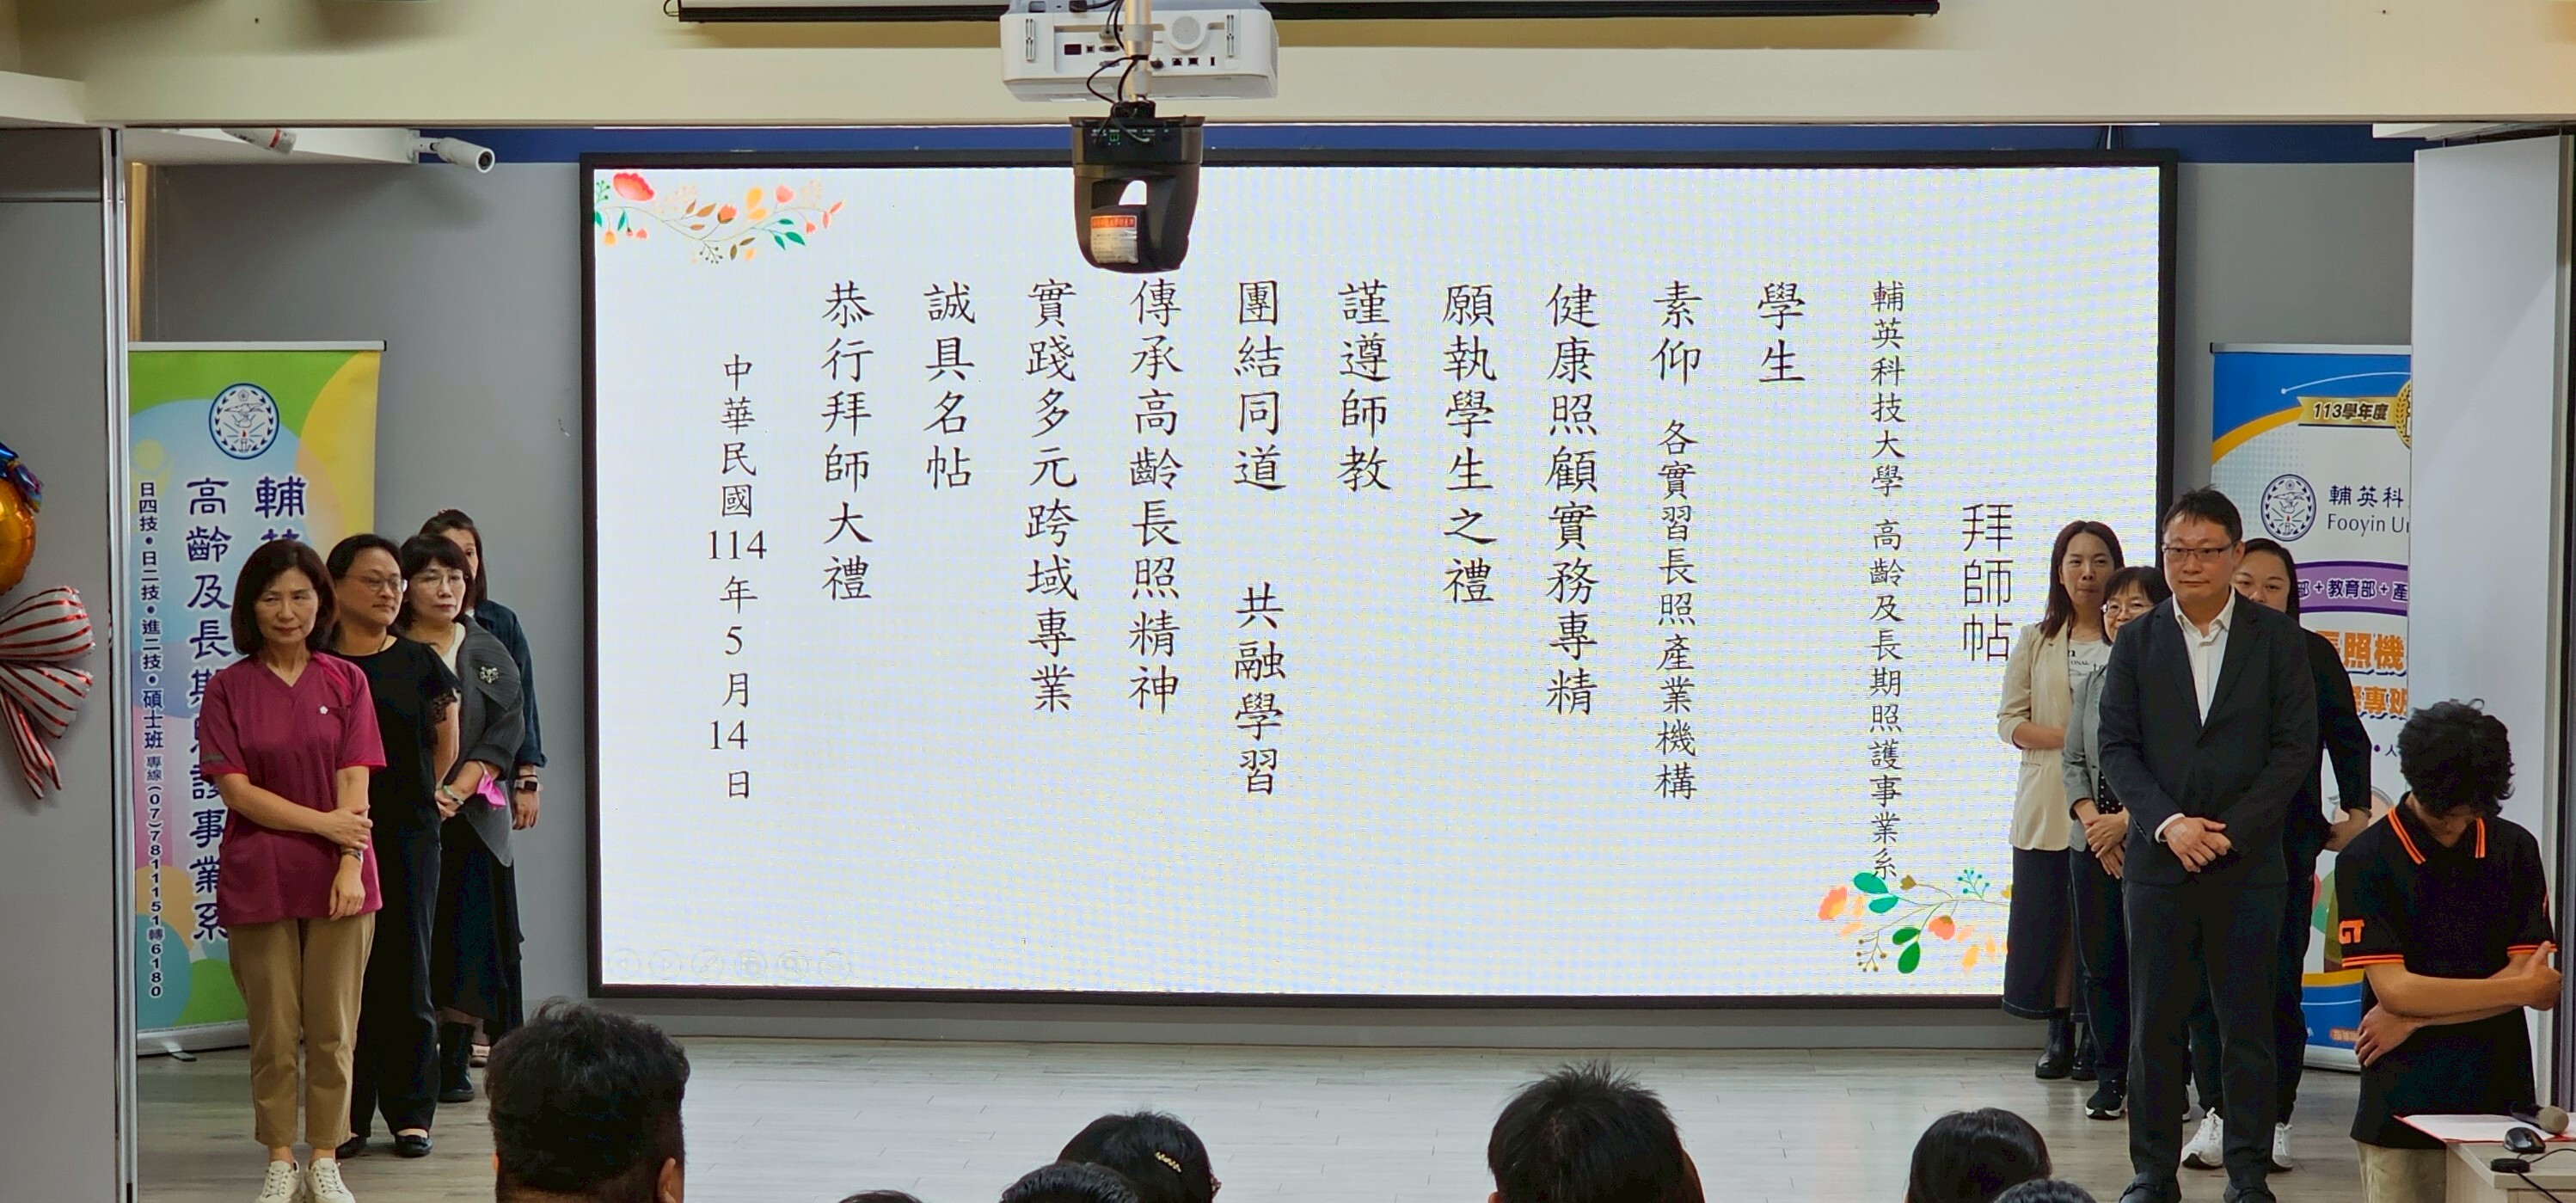 拜師帖
輔英科技大學 高齡及長期照護事業系
學生
素仰 各實習長照產業機構
健康照顧實務專精
願執學生之禮
謹遵師教
團結同道 共融學習
傳承高齡長照精神
實踐多元跨域專業
誠具名帖
恭行拜師大禮
中華民國114年5月14日
輔英
高齡及長期照護事業系
日四技•日二技•進二技•碩士班 專線(07)7811151轉6180
113學年度
輔英科
Fooyin U
部+教育部+產
長照機
專班
GT